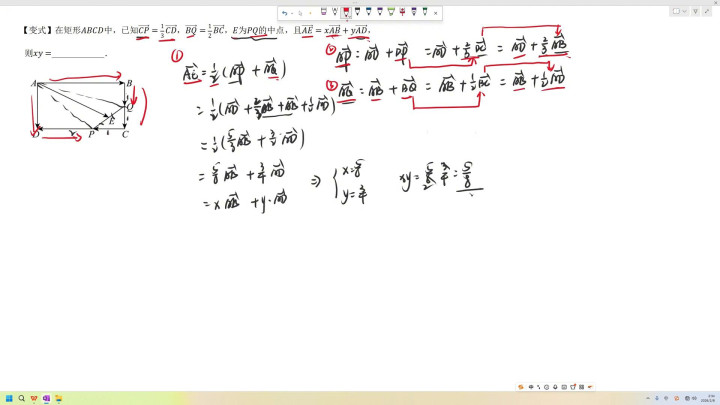 【变式】在矩形ABCD中，已知$\overrightarrow{CP}=\frac{1}{3}\overrightarrow{CD}$，$\overrightarrow{BQ}=\frac{1}{2}\overrightarrow{BC}$，E为PQ的中点，且$\overrightarrow{AE}=x\overrightarrow{AB}+y\overrightarrow{AD}$，
则xy=________.
A B
Q
E
D P C
① $\overrightarrow{AE}=\frac{1}{2}(\overrightarrow{AP}+\overrightarrow{AQ})$
$=\frac{1}{2}(\overrightarrow{AD}+\frac{2}{3}\overrightarrow{AB}+\overrightarrow{AB}+\frac{1}{2}\overrightarrow{AD})$
$=\frac{1}{2}(\frac{5}{3}\overrightarrow{AB}+\frac{3}{2}\overrightarrow{AD})$
$=\frac{5}{6}\overrightarrow{AB}+\frac{3}{4}\overrightarrow{AD}$
$=x\overrightarrow{AB}+y\cdot\overrightarrow{AD}$
② $\overrightarrow{AP}=\overrightarrow{AD}+\overrightarrow{DP}=\overrightarrow{AD}+\frac{2}{3}\overrightarrow{DC}=\overrightarrow{AD}+\frac{2}{3}\overrightarrow{AB}$
③ $\overrightarrow{AQ}=\overrightarrow{AB}+\overrightarrow{BQ}=\overrightarrow{AB}+\frac{1}{2}\overrightarrow{BC}=\overrightarrow{AB}+\frac{1}{2}\overrightarrow{AD}$
⇒ { $x=\frac{5}{6}$
$y=\frac{3}{4}$
$xy=\frac{5}{6}\cdot\frac{3}{4}=\frac{5}{8}$